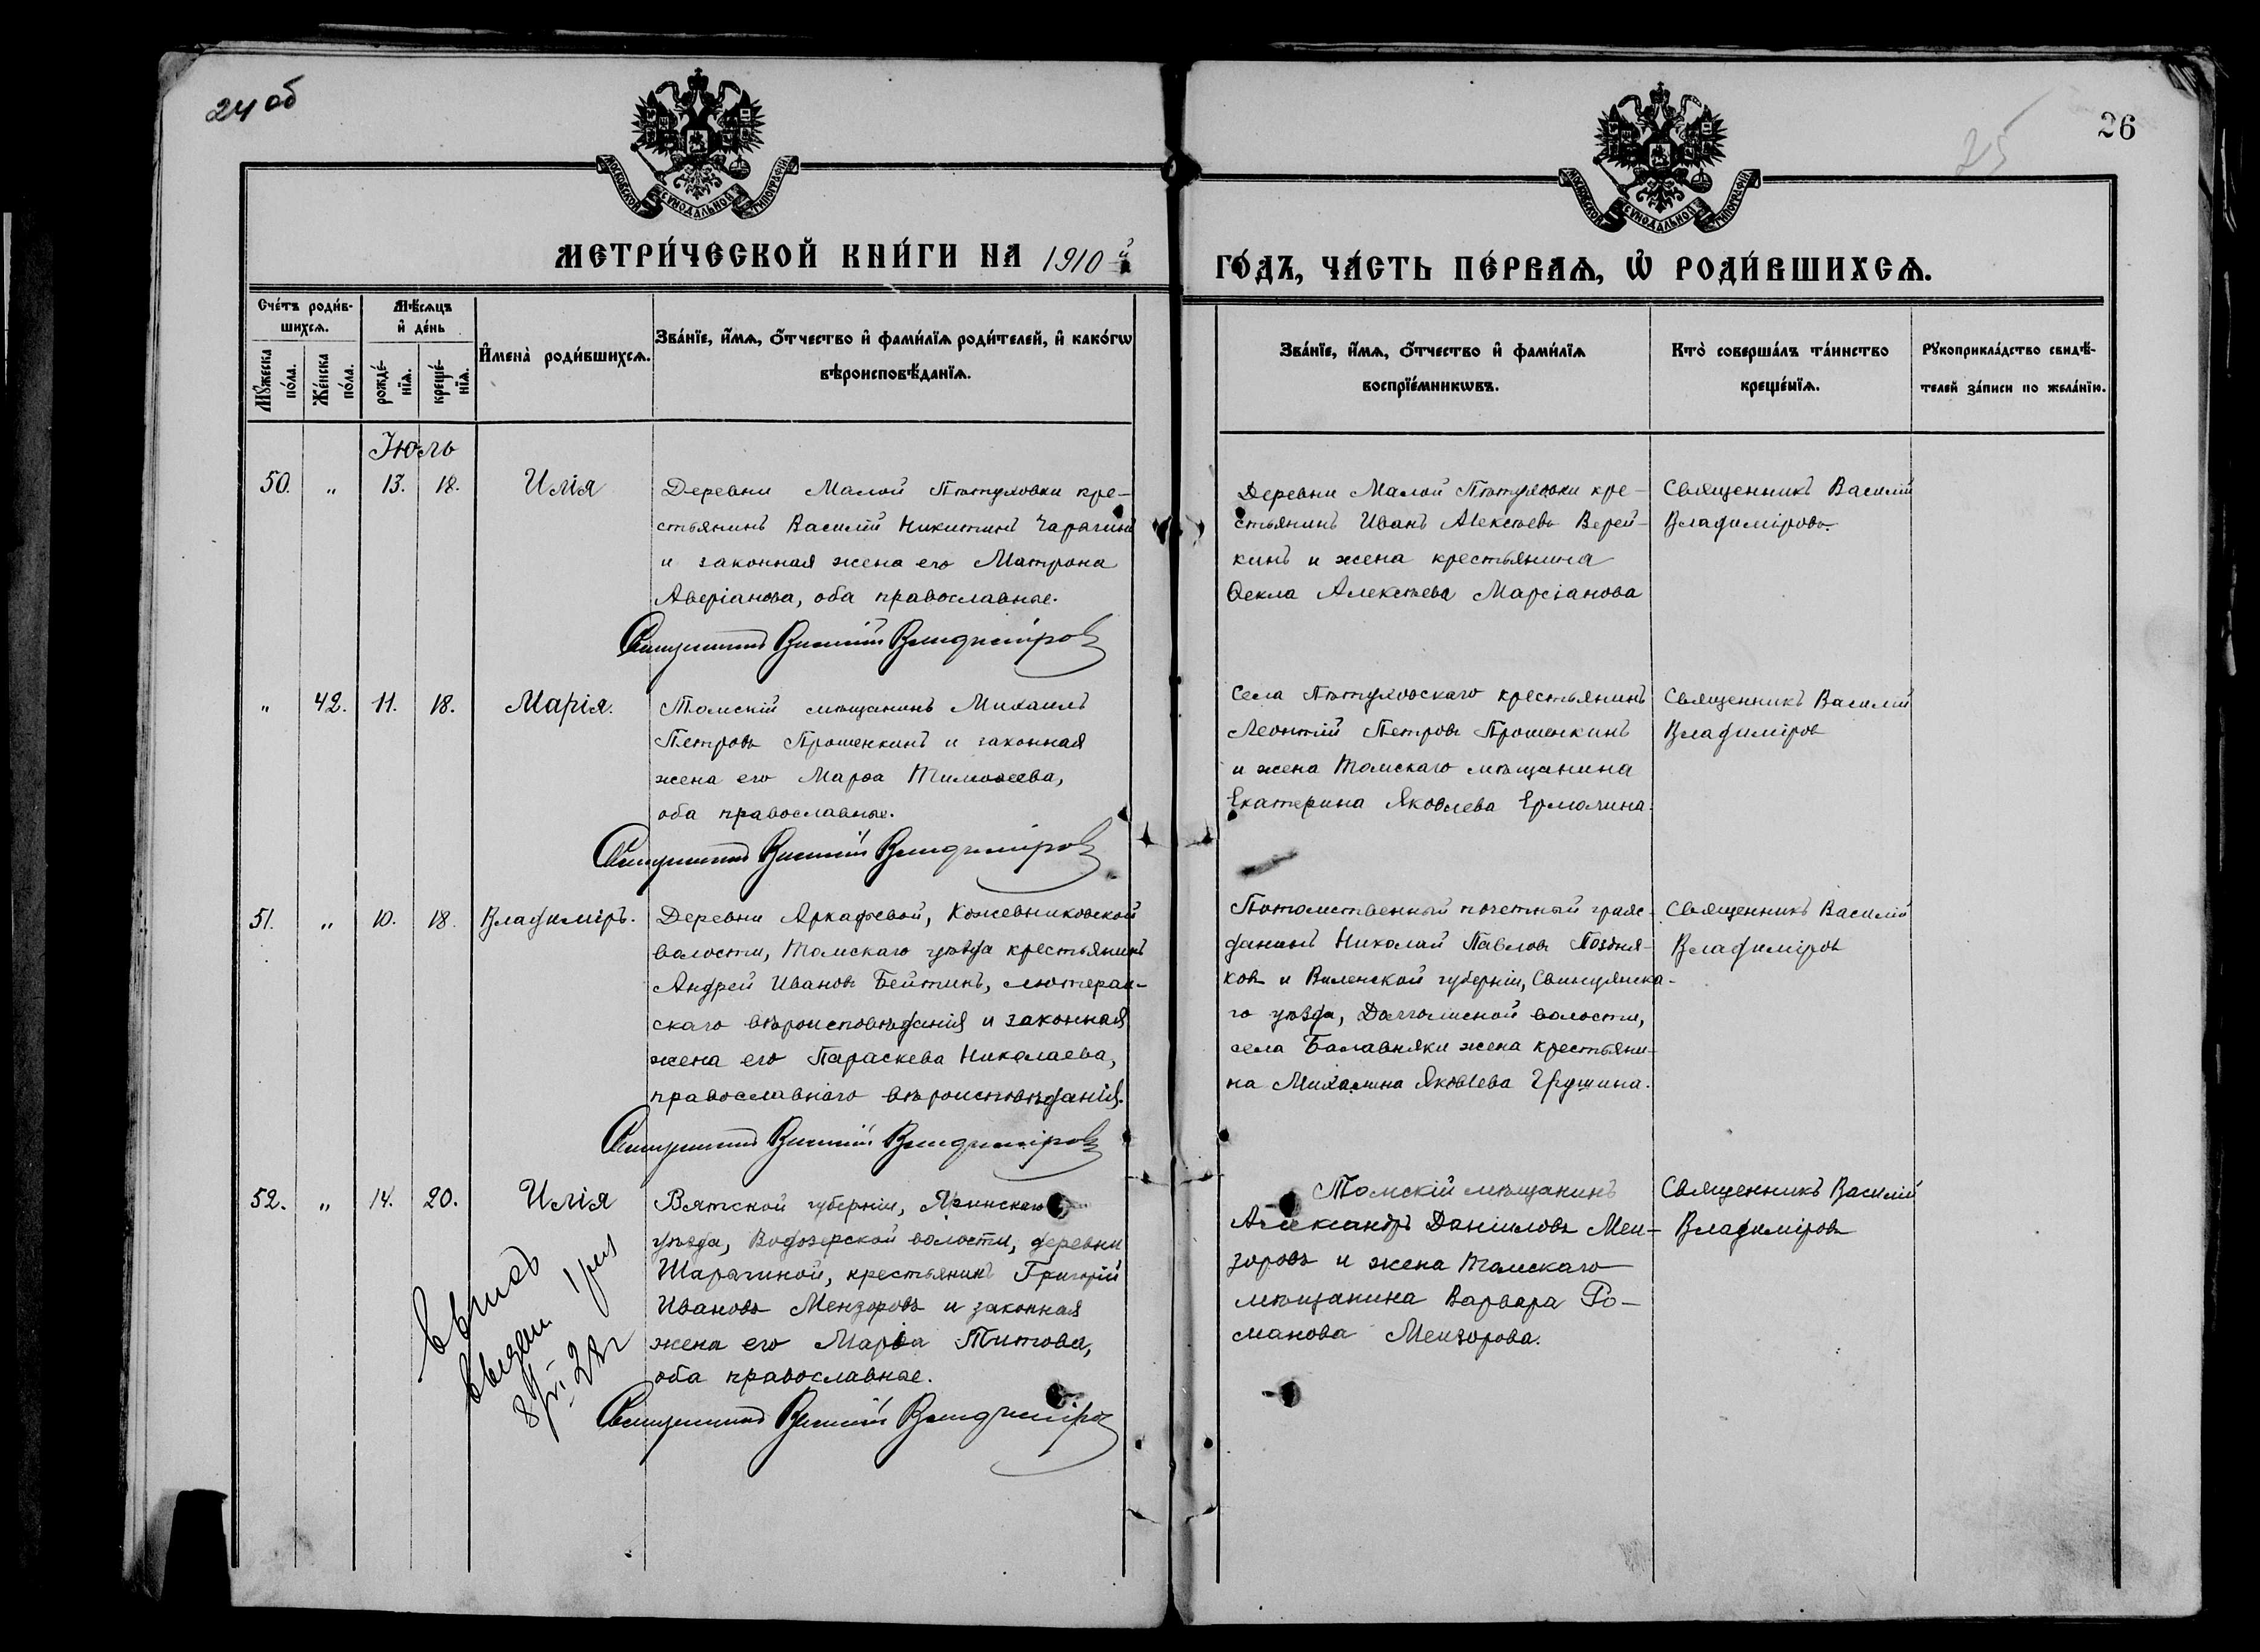 24 об
26
25
МОСКОВСКОЙ СѴНОДАЛЬНОЙ ТИПОГРАФІИ
МОСКОВСКОЙ СѴНОДАЛЬНОЙ ТИПОГРАФІИ
МЕТРИ́ЧЕСКОЙ КНИ́ГИ НА 1910 й
ГО́ДЪ, ЧА́СТЬ ПЕ́РВАѦ, Ѡ҆ РОДИ́ВШИХСѦ.
Сче́тъ роди́в-
шихсѧ.
Мꙋ́жеска
по́ла.
Же́нска
по́ла.
Мѣ́сѧцъ
и҆ де́нь
рожде́-
нїѧ.
креще́-
нїѧ.
И҆мена̀ роди́вшихсѧ.
Зва́нїе, и҆́мѧ, ѻ҆́тчество и҆ фами́лїѧ роди́телей, и҆ како́гѡ
вѣроисповѣ́данїѧ.
Зва́нїе, и҆́мѧ, ѻ҆́тчество и҆ фами́лїѧ
воспрїе́мникѡвъ.
Кто̀ соверша́лъ та́инство
креще́нїѧ.
Рꙋкоприкла́дство свидѣ́-
телей за́писи по жела́нїю.
Іюль
50. „ 13. 18. Илія
Деревни Малой Пѣтуховки кре-
стьянинъ Василій Никитинъ Чарагинъ
и законная жена его Матрона
Аверіанова, оба православные.
Священникъ Василій Владиміровъ
Деревни Малой Пѣтуховки кре-
стьянинъ Иванъ Алексѣевъ Верей-
кинъ и жена крестьянина
Ѳекла Алексѣева Марсіанова
Священникъ Василій
Владиміровъ.
„ 42. 11. 18. Марія.
Томскій мѣщанинъ Михаилъ
Петровъ Прошенкинъ и законная
жена его Марѳа Тимоѳеева,
оба православные.
Священникъ Василій Владиміровъ
Села Пѣтуховскаго крестьянинъ
Леонтій Петровъ Прошенкинъ
и жена Томскаго мѣщанина
Екатерина Яковлева Ермолина.
Священникъ Василій
Владиміровъ
51. „ 10. 18. Владиміръ.
Деревни Аркадьевой, Кожевниковской
волости, Томскаго уѣзда крестьянинъ
Андрей Ивановъ Бейтинъ, лютеран-
скаго вѣроисповѣданія и законная
жена его Параскева Николаева,
православнаго вѣроисповѣданія.
Священникъ Василій Владиміровъ
Потомственный почетный граж-
данинъ Николай Павловъ Поздня-
ковъ и Виленской губерніи, Свинцянска-
го уѣзда, волости,
села Балавняки жена крестьяни-
на Михалина Яковлева Грушина.
Священникъ Василій
Владиміровъ
52. „ 14. 20. Илія
Вятской губерніи, Яранскаго
уѣзда, Водозерской волости, деревни
Шарагиной, крестьянинъ Григорій
Ивановъ Мензоровъ и законная
жена его Марѳа Титова,
оба православные.
Священникъ Василій Владиміровъ
Томскій мѣщанинъ
Александръ Даніиловъ Мен-
зоровъ и жена Томскаго
мѣщанина Варвара Ро-
манова Мензорова.
Священникъ Василій
Владиміровъ